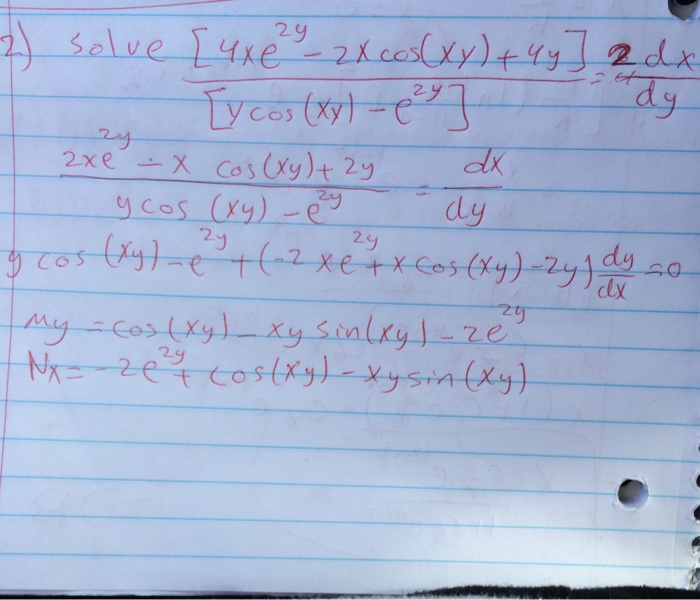 2) solve [4xe^{2y} - 2x cos(xy) + 4y] / [y cos(xy) - e^{2y}] = 2 dx/dy
2xe^{2y} - x cos(xy) + 2y / y cos (xy) - e^{2y} = dx/dy
y cos (xy) - e^{2y} + (-2xe^{2y} + x cos(xy) - 2y) dy/dx = 0
My = cos(xy) - xy sin(xy) - 2e^{2y}
Nx = -2e^{2y} + cos(xy) - xy sin(xy)